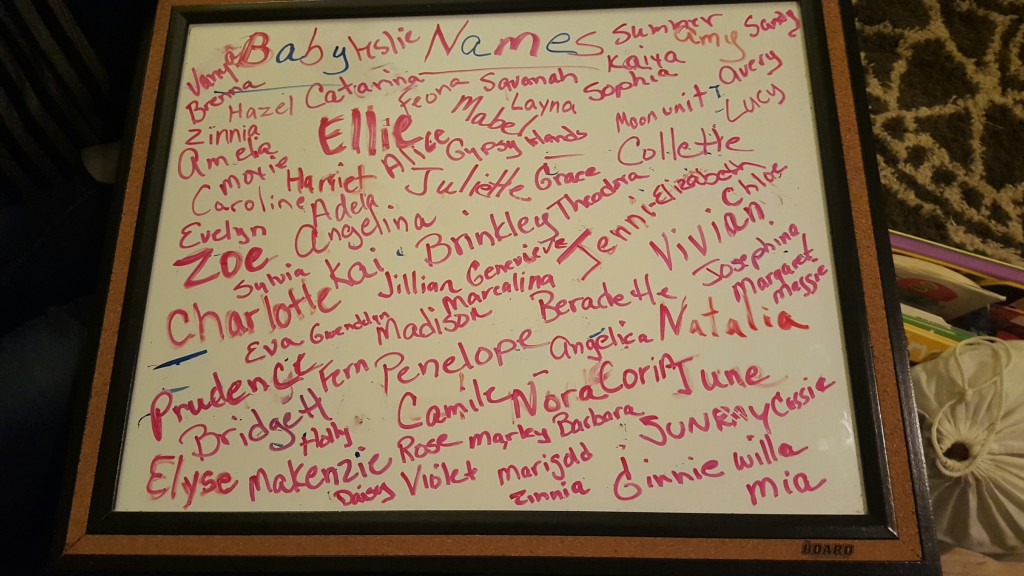 Baby Names
Leslie
Summer
Amy
Sandy
Brenna
Hazel
Catianna
Feona
Savanah
Kaiya
Sophia
Avery
Zinnia
Ellie
Mabel
Layna
Moon unit
Lucy
Amelia
Alice
Gypsy
Hands
Collette
Harriet
Juliette
Grace
Caroline
Adela
Theodora
Jenni-Elizabeth
Chloe
Evelyn
Angelina
Brinkley
Vivian
Zoe
Sylvia
Kai
Jillian
Genevieve
Josephina
Charlotte
Marcalina
Margaret
Maggie
Eva
Gwendolyn
Madison
Beradette
Natalia
Prudence
Fern
Penelope
Angelica
Bridgett
Camile
Nora
CoriA
June
Holly
Rose
Marley
Barbara
JUNRAY
Cassie
Elyse
Makenzie
Daisy
Violet
Marigold
Zinnia
Ginnie
Willa
Mia
BOARD